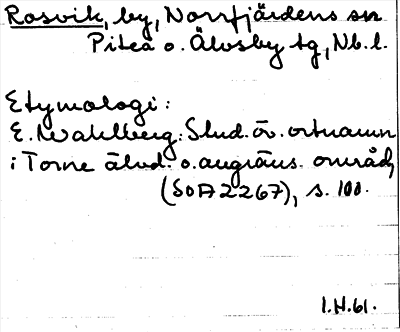 Rosvik, by, Norrfjärdens sn
Piteå o. Älvsby tg, Nb.l.
Etymologi:
E. Wahlberg: Stud. öv. ortnamn
i Torne älvd. o. angräns. områd,
(SOA 2267), s. 100.
1.H.61.